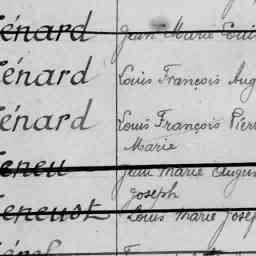 énard Jean Marie Loui
énard Louis François Aug
énard Louis François Pierr
Marie
eneu Jean Marie Eugen
Joseph
eneust Louis Marie Josep